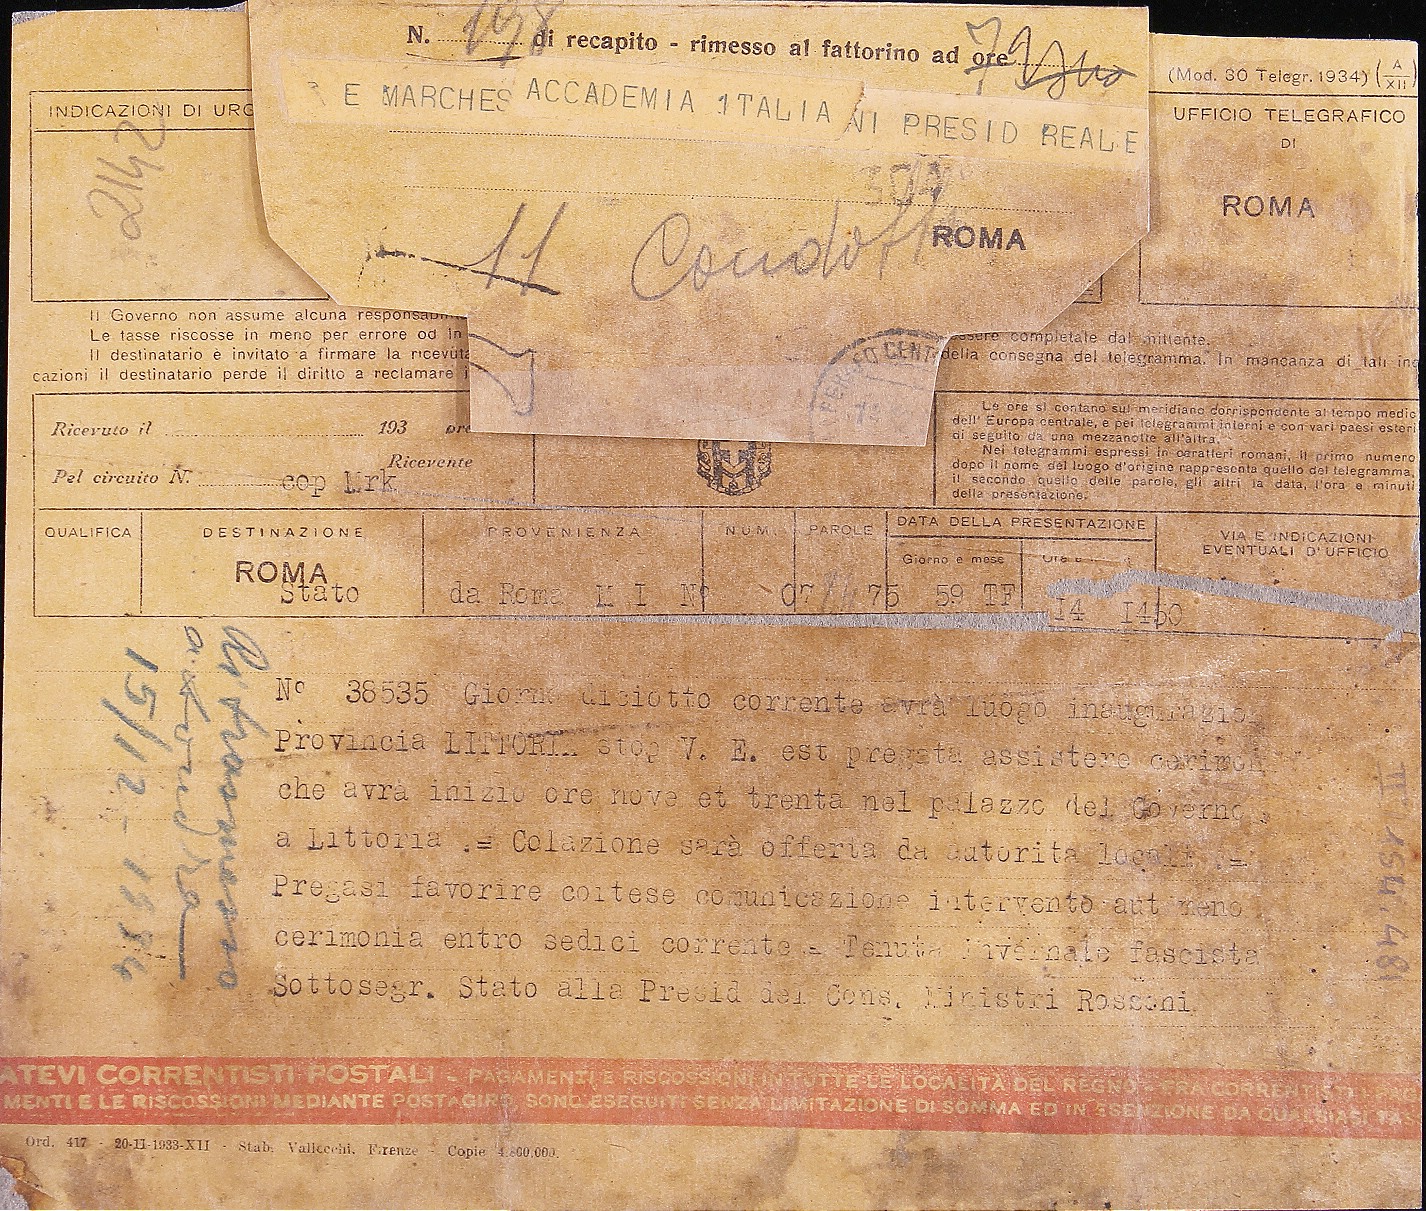 N. 198 di recapito - rimesso al fattorino ad ore
E MARCHES ACCADEMIA ITALIA NI PRESID REALE
11
ROMA
(Mod. 30 Telegr. 1934) (A XII)
INDICAZIONI DI URG
UFFICIO TELEGRAFICO
DI
ROMA
Il Governo non assume alcuna responsabil
Le tasse riscosse in meno per errore od in
essere completate dal mittente.
Il destinatario è invitato a firmare la ricevuta
della consegna del telegramma. In mancanza di tali in
cazioni il destinatario perde il diritto a reclamare i
PERGEO CENT
Ricevuto il 193 ore
Pel circuito N. Ricevente
cop Mrk
Le ore si contano sul meridiano corrispondente al tempo medio
dell' Europa centrale, e pei telegrammi interni e con vari paesi esteri
di seguito da una mezzanotte all'altra.
Nei telegrammi espressi in caratteri romani, il primo numero
dopo il nome del luogo d'origine rappresenta quello del telegramma,
il secondo quello delle parole, gli altri la data, l'ora e minuti
della presentazione.
QUALIFICA DESTINAZIONE PROVENIENZA NUM. PAROLE DATA DELLA PRESENTAZIONE VIA E INDICAZIONI
EVENTUALI D'UFFICIO
Giorno e mese
ROMA
Stato da Roma M I Nº 07 75 59 TF 14 1450
Nº 38535 Giorno diciotto corrente avrà luogo inaugurazion
Provincia LITTORIA stop V. E. est pregata assistere cerimon
che avrà inizio ore nove et trenta nel palazzo del Governo
a Littoria .= Colazione sarà offerta da autorita locali .=
Pregasi favorire coitese comunicazione intervento aut meno
cerimonia entro sedici corrente = Tenuta invernale fascista
Sottosegr. Stato alla Presid del Cons. Ministri Rossoni
15/12-1934
ATEVI CORRENTISTI POSTALI - PAGAMENTI E RISCOSSIONI IN TUTTE LE LOCALITÀ DEL REGNO - FRA CORRENTISTI I PAG
MENTI E LE RISCOSSIONI MEDIANTE POSTAGIRO, SONO ESEGUITI SENZA LIMITAZIONE DI SOMMA ED IN ESENZIONE DA QUALSIASI TAS
Ord. 417 - 20-11-1933-XII - Stab. Vallecchi, Firenze - Copie 4.800.000.